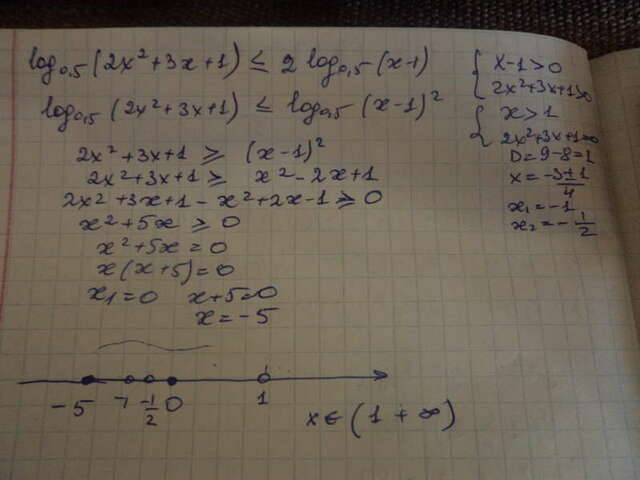 log₀,₅(2x²+3x+1) ≤ 2 log₀,₅(x-1)
log₀,₅(2x²+3x+1) ≤ log₀,₅(x-1)²
2x²+3x+1 ≥ (x-1)²
2x²+3x+1 ≥ x²-2x+1
2x²+3x+1-x²+2x-1 ≥ 0
x²+5x ≥ 0
x²+5x=0
x(x+5)=0
x₁=0 x+5=0
x=-5
{ x-1>0
2x²+3x+1>0
{ x>1
2x²+3x+1=0
D=9-8=1
x=(-3±1)/4
x₁=-1
x₂=-1/2
-5 -1 -1/2 0 1
x∈(1+∞)